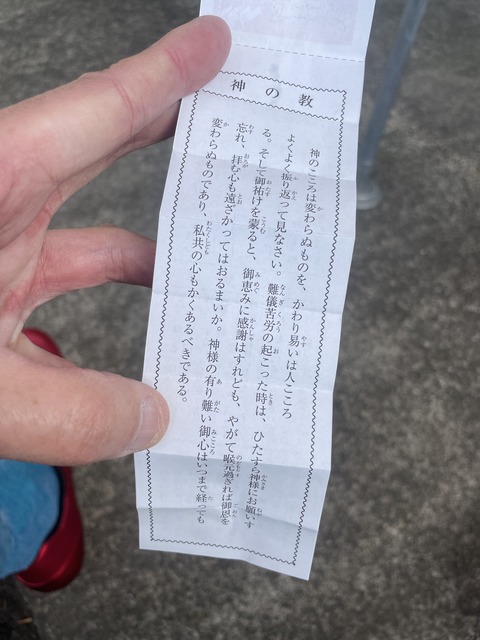 神の教
神のこころは変わらぬものを、かわり易いは人ごころ
よくよく振り返って見なさい。難儀苦労の起こった時は、ひたすら神様にお願いす
る。そして御祐けを蒙ると、御恵みに感謝はすれども、やがて喉元過ぎれば御恩を
忘れ、拝む心も遠ざかってはおるまいか。神様の有り難い御心はいつまで経っても
変わらぬものであり、私共の心もかくあるべきである。